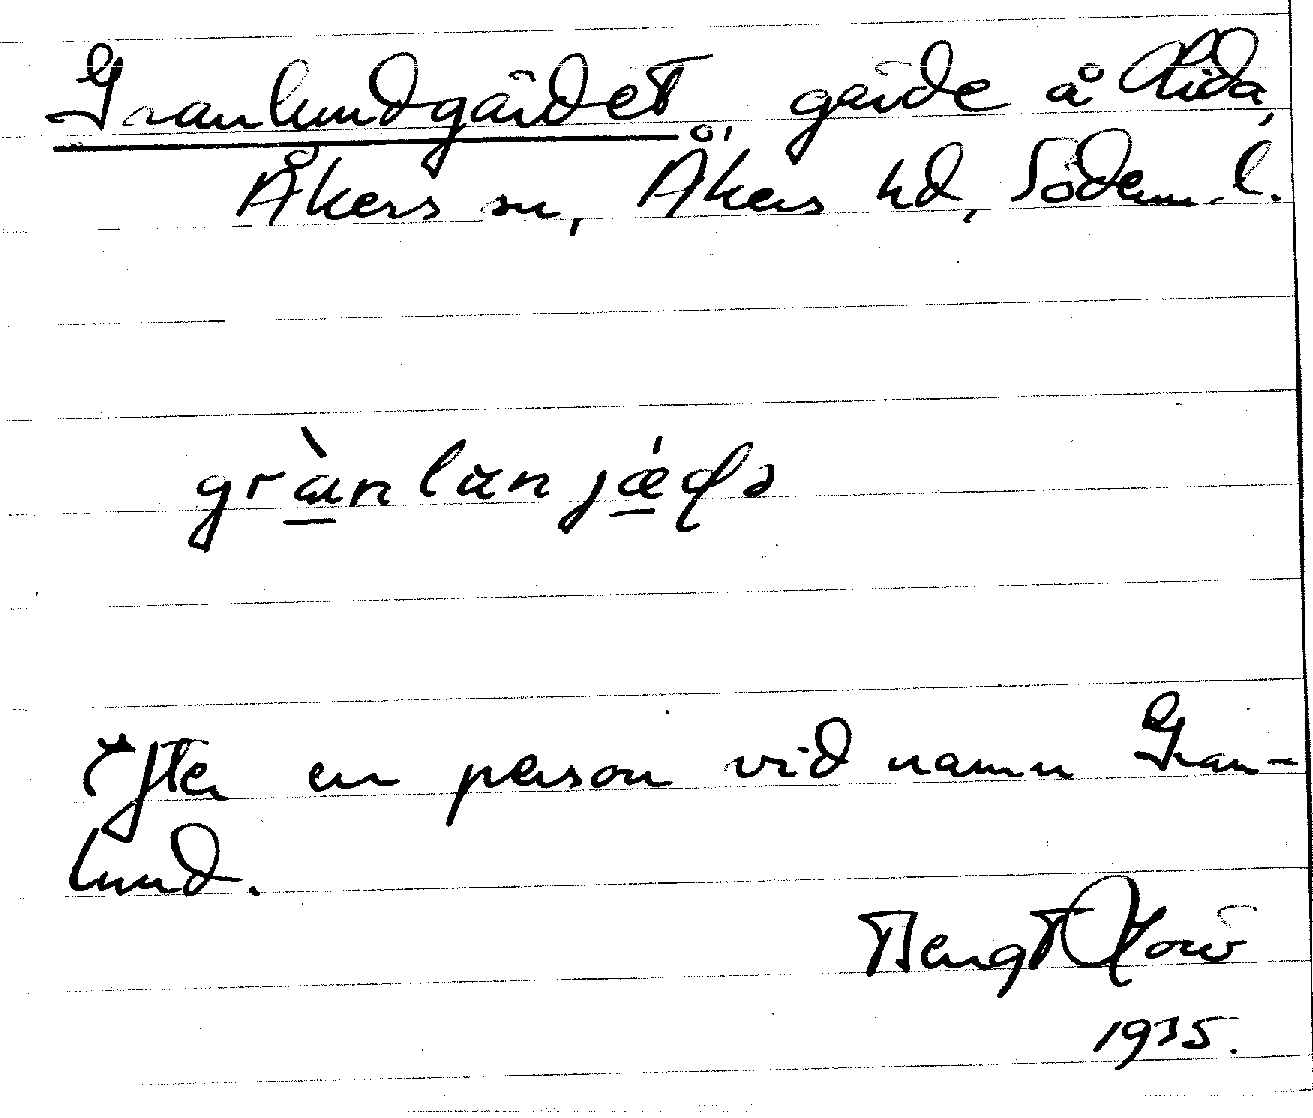 Granlundgärdet, gärde å Lida,
Åkers sn, Åkers hd, Söderm. l.
grànlunjǽḍə
Efter en person vid namn Gran-
lund.
Bengt
1935.